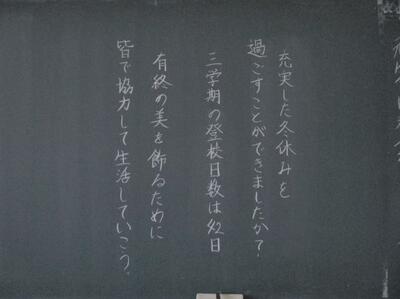 充実した冬休みを
過ごすことができましたか？
三学期の登校日数は42日
有終の美を飾るために
皆で協力して生活していこう。